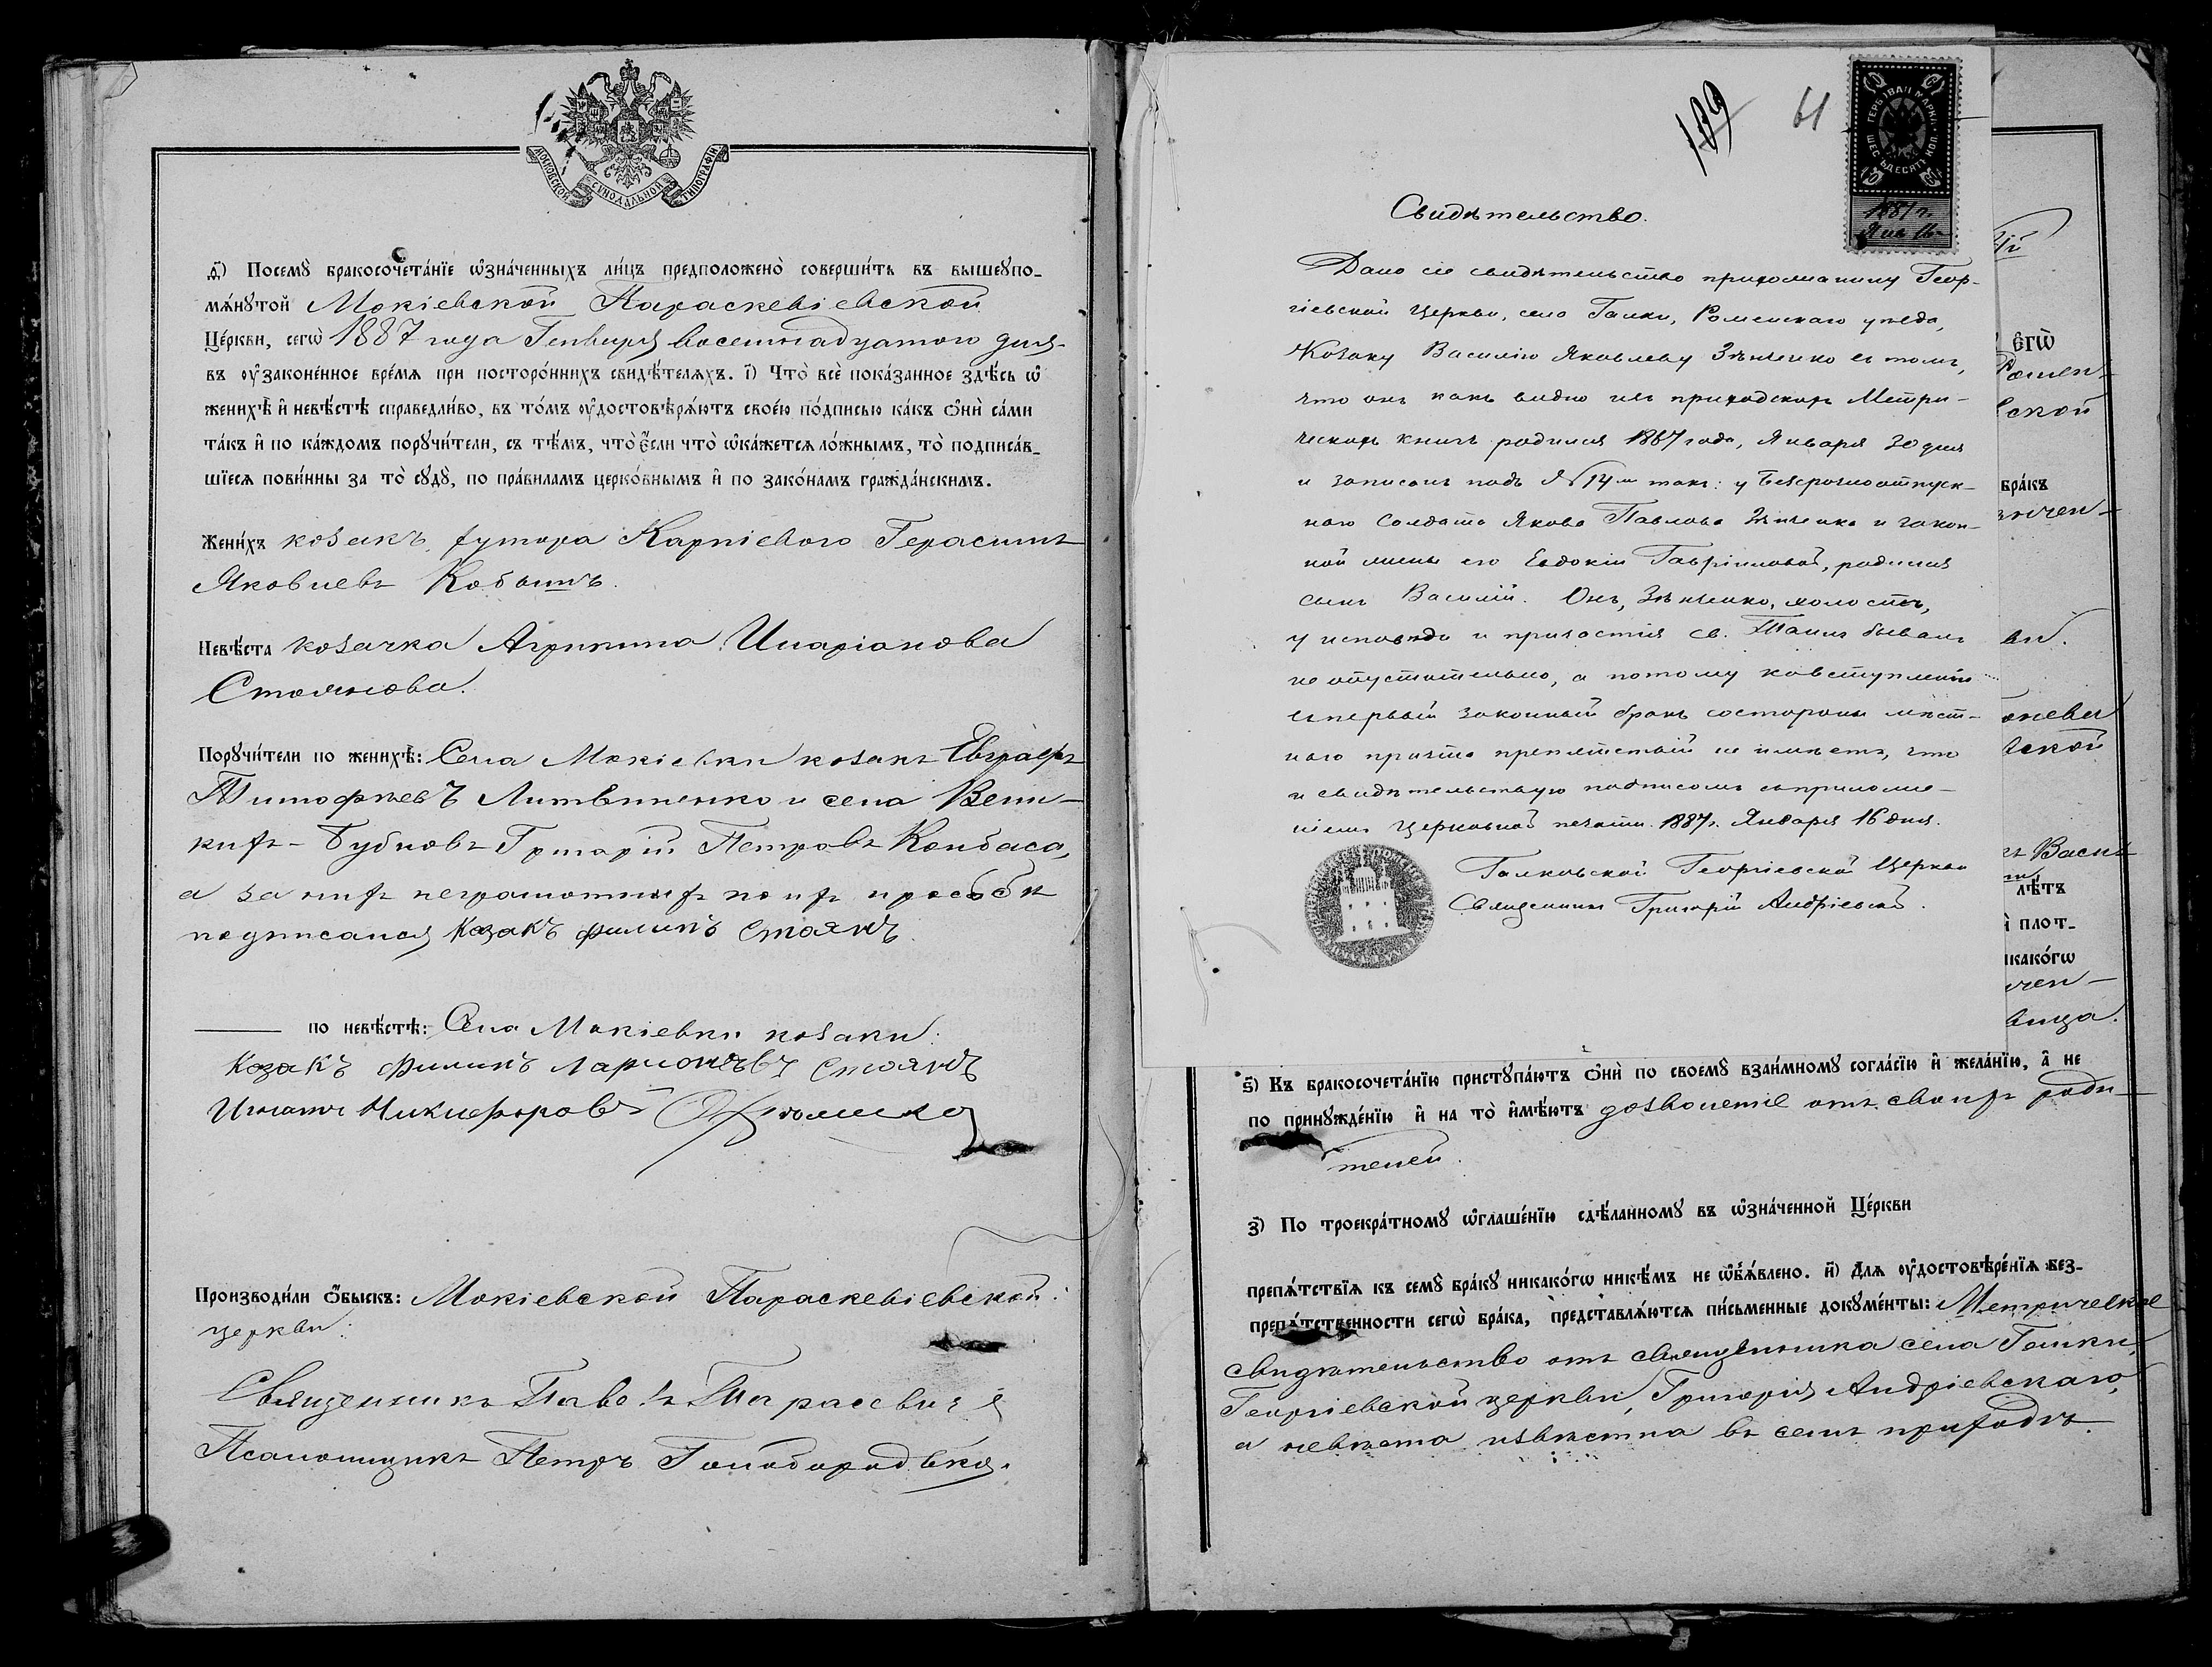 МОСКОВСКОЙ СѴНОДАЛЬНОЙ ТИПОГРАФІИ
ѳ҃) Посемꙋ̀ бракосочета́нїе ѡ҆зна́ченныхъ ли́цъ предположено̀ соверши́ть въ вышеꙋпо-
мѧ́нꙋтой Мокіевской Параскевіевской
Це́ркви, сегѡ̀ 1887 года Генваря восемнадцатого дня
въ ᲂу҆законе́нное вре́мѧ при посторо́ннихъ свидѣ́телѧхъ. і҃) Что̀ всѐ пока́занное здѣ́сь ѡ҆
женихѣ̀ и҆ невѣ́стѣ справедли́во, въ то́мъ ᲂу҆достовѣрѧ́ютъ своею́ по́дписью ка́къ ѻ҆нѝ са́ми
та́къ и҆ по ка́ждомъ порꙋчи́тели, съ тѣ́мъ, что̀ є҆́сли что̀ ѡ҆ка́жетсѧ ло́жнымъ, то̀ подписа́в-
шїесѧ пови́нны за то̀ сꙋдꙋ̀, по пра́виламъ церко́внымъ и҆ по зако́намъ гражда́нскимъ.
Жени́хъ козакъ, хутора Карпіевого Герасимъ
Яковлевъ Кобышъ.
Невѣ́ста козачка Агрипина Иларіонова
Стоянова.
Порꙋчи́тели по женихѣ̀: Села Мокіевки козакъ Евграфъ
Тимофѣевъ Литвиненко и села Вели-
кихъ-Бубновъ Григорій Петровъ Конбаса,
а за нихъ неграмотныхъ по ихъ просьбѣ
подписался Козакъ Филипъ Стоянъ
по невѣ́стѣ: Села Мокіевки козаки:
Козакъ Филипъ Ларионовъ Стоянъ
Игнатъ Никифоровъ
Производи́ли ѻ҆́быскъ: Мокіевской Параскевіевской
церкви:
Священникъ Павелъ Тарасевичъ
Псаломщикъ Петръ Голобородько.
109 61
ГЕРБОВАЯ МАРКА ШЕСТЬДЕСЯТЪ КОП.
1887 г.
Янв. 16
Свидѣтельство.
Дано сіе свидѣтельство прихожанину Геор-
гіевской церкви, села Галки, Роменскаго уѣзда,
Козаку Василію Яковлеву Зѣнченко въ томъ,
что онъ какъ видно изъ приходскихъ Метри-
ческихъ книгъ родился 1867 года, Января 30 дня
и записанъ подъ № 14 м такъ: у Безсрочноотпуск-
ного Солдата Якова Павлова Зѣнченка и закон-
ной жены его Евдокіи Гавріиловой, родился
сынъ Василій. Онъ, Зѣнченко, холостъ,
у исповѣди и причастія св. Таинъ бывалъ
неопустительно, а потому ковступленію
въ первый законный бракъ состороны мѣст-
ного причта препятствій не имѣетъ, что
и свидѣтельствую подписомъ съприложе-
ніемъ церковной печати. 1887 г. Января 16 дня.
Галковской Георгіевской Церкви
Священникъ Григорій Андріевскій.
є҆гѡ̀
Ромен-
ской
бра́къ
Васил
лѣ́тъ
плот-
ника́кѡгѡ
вица.
ѕ҃) Къ бракосочета́нїю пристꙋпа́ютъ ѻ҆нѝ по своемꙋ̀ взаи́мномꙋ согла́сїю и҆ жела́нїю, а҆ не
по принꙋжде́нїю и҆ на то̀ и҆мѣ́ютъ дозволеніе отъ своихъ роди-
телей.
з҃) По троекра́тномꙋ ѡ҆глаше́нїю сдѣ́ланномꙋ въ ѡ҆зна́ченной Це́ркви
препѧ́тствїѧ къ семꙋ̀ бра́кꙋ никако́гѡ никѣ́мъ не ѡ҆б̾ѧ́влено. и҃) Длѧ ᲂу҆достовѣре́нїѧ без-
препѧ́тственности сегѡ̀ бра́ка, представлѧ́ютсѧ пи́сьменные докꙋме́нты: Метрическое
свидѣтельство отъ священника села Галки,
Георгіевской церкви, Григорія Андріевскаго,
а невѣста извѣстна въ семъ приходѣ.